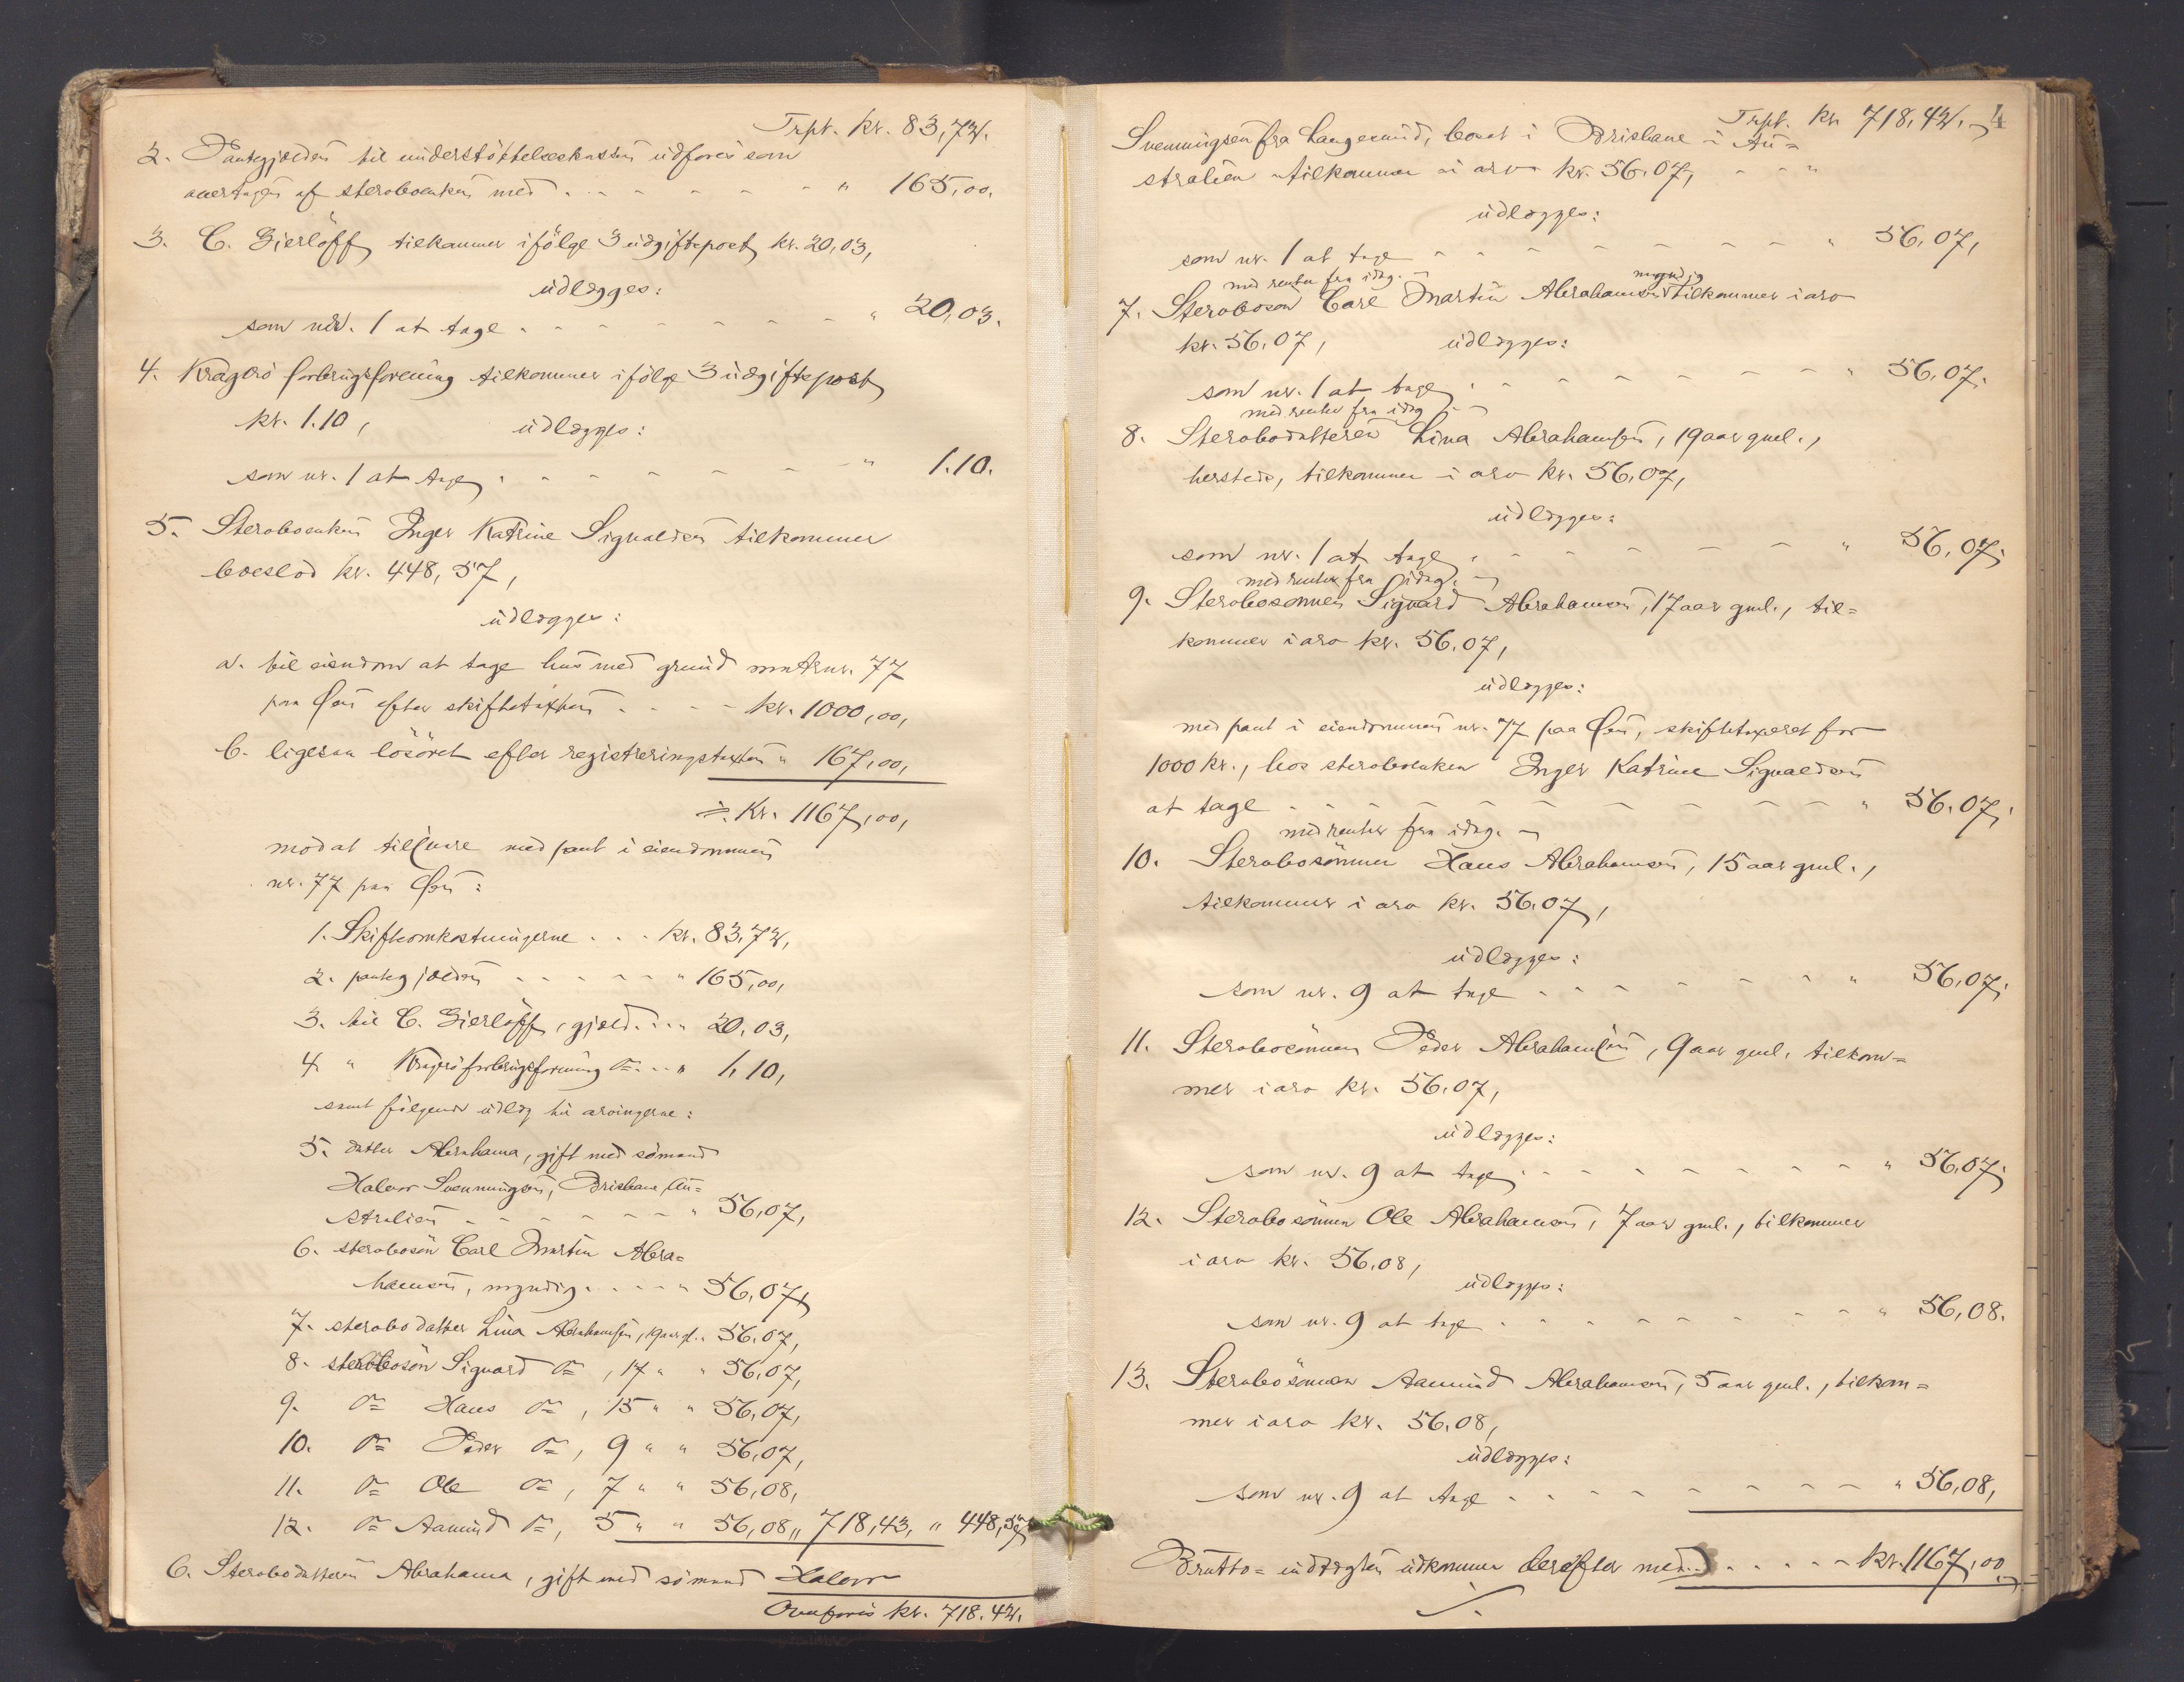 Trpt. kr. 83,72.
2. Pantegjælden til understöttelseskassen udföres som
overtagen af sterboenken med . . . " 165,00.
3. C. Gierlöff tilkommer ifölge 3 udgiftspost kr. 20,03,
udlægges:
som nr. 1 at tage . . . " 20,03.
4. Kragerö forbrugsforening tilkommer ifölge 3 udgiftspost
kr. 1.10, udlægges:
som nr. 1 at tage . . . " 1.10.
5. Sterboenken Inger Katrine Sigvaldsen tilkommer
boeslod kr. 448,57,
udlægges:
a. til eiendom at tage hus med grund matr nr. 77
paa Öen efter skiftetaxten . . . kr. 1000,00,
b. ligesaa lösöret efter registreringstaxten " 167,00,
÷ Kr. 1167,00,
mod at tilsvare med pant i eiendommen
nr. 77 paa Öen:
1. Skifteomkostningerne . . . kr. 83,72,
2. pantegjælden . . . " 165,00,
3. til C. Gierlöff, gjæld . . . " 20,03,
4. " Kragerö forbrugsforening do . . " 1,10,
samt fölgende udlæg til arvingerne:
5. datter Abrahama, gift med sömand
Halvor Svenningsen, Brisbane, Au=
stralien . . . " 56,07,
6. sterboson Carl Martin Abra=
hamsen, myndig . . . " 56,07,
7. sterbodatter Lina Abrahamsen, 19 aar gl. " 56,07,
8. sterbosön Sigvard do, 17 " " 56,07,
9. do Hans do, 15 " " 56,07,
10. do Peder do, 9 " " 56,07,
11. do Ole do, 7 " " 56,08,
12. do Aamund do, 5 " " 56,08 " 718,43, " 448,57
6. Sterbodatteren Abrahama, gift med sömand Halvor
Overföres kr. 718.42.
Trpt. kr. 718,42. 4
Svenningsen fra Langesund, boset i Brisbane i Au=
stralien tilkommer i arv kr. 56,07, . . "
udlægges:
som nr. 1 at tage . . . " 56,07,
med renter fra idag.
7. Sterboson Carl Martin Abrahamsen myndig tilkommer i arv
kr. 56,07, udlægges:
som nr. 1 at tage . . . " 56,07.
med renter fra idag
8. Sterbodatteren Lina Abrahamsen, 19 aar gml.,
hersteds, tilkommer i arv kr. 56,07,
udlægges:
som nr. 1 at tage . . . " 56,07,
med renter fra idag.
9. Sterbosonnen Sigvard Abrahamsen, 17 aar gml., til=
kommer i arv kr. 56,07,
udlægges:
med pant i eiendommen nr. 77 paa Öen, skiftetaxeret for
1000 kr., hos sterboenken Inger Katrine Sigvaldsen
at tage . . . " 56,07,
med renter fra idag.
10. Sterbosönnen Hans Abrahamsen, 15 aar gml.,
tilkommer i arv kr. 56,07,
udlægges:
som nr. 9 at tage . . . " 56,07,
11. Sterbosönnen Peder Abrahamsen, 9 aar gml. tilkom=
mer i arv kr. 56,07,
udlægges:
som nr. 9 at tage . . . " 56,07,
12. Sterbosönnen Ole Abrahamsen, 7 aar gml., tilkommer
i arv kr. 56,08,
udlægges:
som nr. 9 at tage . . . " 56,08.
13. Sterbosönnen Aamund Abrahamsen, 5 aar gml., tilkom=
mer i arv kr. 56,08,
udlægges:
som nr. 9 at tage . . . " 56,08,
Brutto=indtægten udkommer derefter med . . . kr. 1167,00